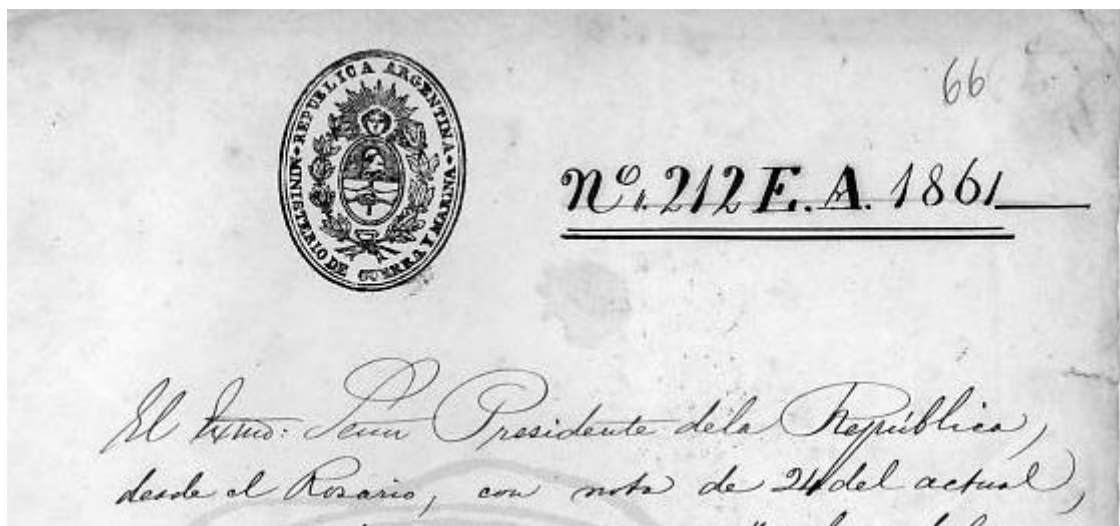 REPUBLICA ARGENTINA
MINISTERIO DE GUERRA Y MARINA
66
Nº. 212 E. A. 1861
El Exmo: Senor Presidente dela República,
desde el Rosario, con nota de 24 del actual,